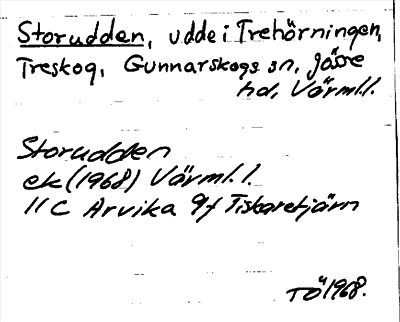 Storudden, udde i Trehörningen,
Treskog, Gunnarskogs sn, Jösse
hd, Värml.l.
Storudden
ek (1968) Värml. l.
11 C Arvika 9f Tiskaretjärn
TÖ 1968.